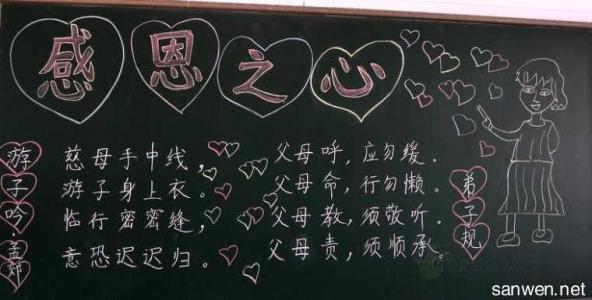 感恩之心
游子吟
孟郊
慈母手中线，
游子身上衣。
临行密密缝，
意恐迟迟归。
父母呼，应勿缓。
父母命，行勿懒。
父母教，须敬听。
父母责，须顺承。
弟子规
sanwen.net